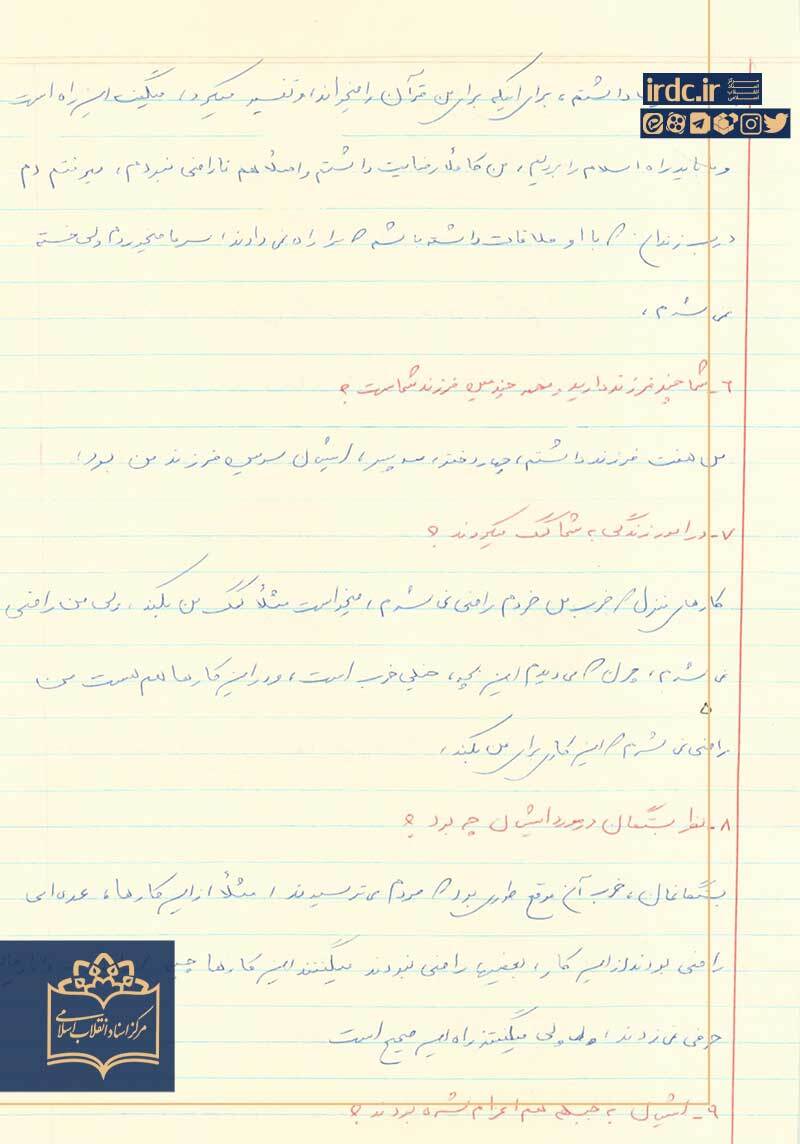 irdc.ir
مرکز اسناد انقلاب اسلامی
داشتم، برای اینکه برای من قرآن را میخواند و تفسیر میکرد، میگفت این راه است
و ما باید راه اسلام را برویم، من کاملاً رضایت داشتم و اصلاً هم ناراضی نبودم، میرفتم دم
درب زندان که با او ملاقات داشته باشم که مرا راه نمی دادند، سرما میخوردم ولی خسته
نمی شدم،
۶- شما چند فرزند دارید و محمد چندمین فرزند شماست ؟
من هفت فرزند داشتم، چهار دختر، سه پسر، ایشان سومین فرزند من بود،
۷- در امور زندگی به شما کمک میکردند ؟
کارهای منزل که خوب من خودم راضی نمی شدم، میخواست مثلاً کمک من بکند، ولی من راضی
نمی شدم، چون که می دیدم این بچه، خیلی خوب است، و در این کارها هم هست من
راضی نمی شدم که این کار برای من بکند،
۸- نظر بستگان در مورد ایشان چه بود ؟
بستگانمان، خوب آن موقع طوری بود که مردم می ترسیدند، مثلاً از این کارها، عده ای
راضی بودند از این کار، بعضیها راضی نبودند میگفتند این کارها
حرفی نمی زدند، ولی میگفتند راه این صحیح است
۹- ایشان به جبهه هم اعزام شده بودند ؟
مرکز اسناد انقلاب اسلامی